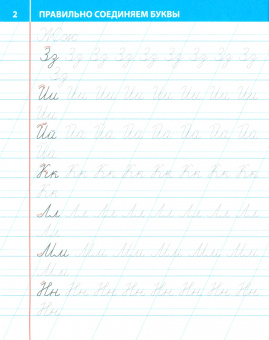 2 ПРАВИЛЬНО СОЕДИНЯЕМ БУКВЫ
Зз Зз Зз Зз Зз Зз Зз Зз Зз
Зз
Ии Ии Ии Ии Ии Ии Ии Ии
Ии
Йй Йй Йй Йй Йй Йй Йй Йй
Йй
Кк Кк Кк Кк Кк Кк Кк Кк
Кк
Лл Лл Лл Лл Лл Лл Лл Лл
Лл
Мм Мм Мм Мм Мм Мм Мм
Мм
Нн Нн Нн Нн Нн Нн Нн Нн
Нн